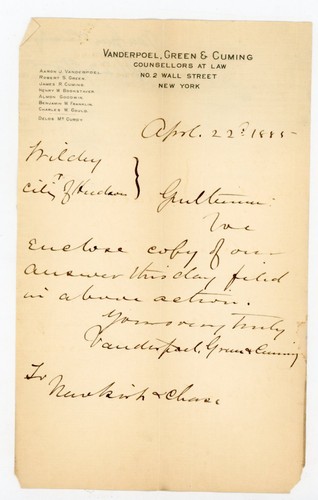 VANDERPOEL, GREEN & CUMING
COUNSELLORS AT LAW
NO. 2 WALL STREET
NEW YORK
AARON J. VANDERPOEL
ROBERT S. GREEN
JAMES R. CUMING
HENRY W. BOOKSTAVER
ALMON GOODWIN
BENJAMIN H. FRANKLIN
CHARLES W. GOULD
DELOS MC CURDY
Apl. 22d 1885
Wildey
vs
City of Hudson
Gentlemen:
We
enclose copy of our
answer this day filed
in above action.
Yours very truly
Vanderpoel, Green & Cuming
To
Newkirk & Chase